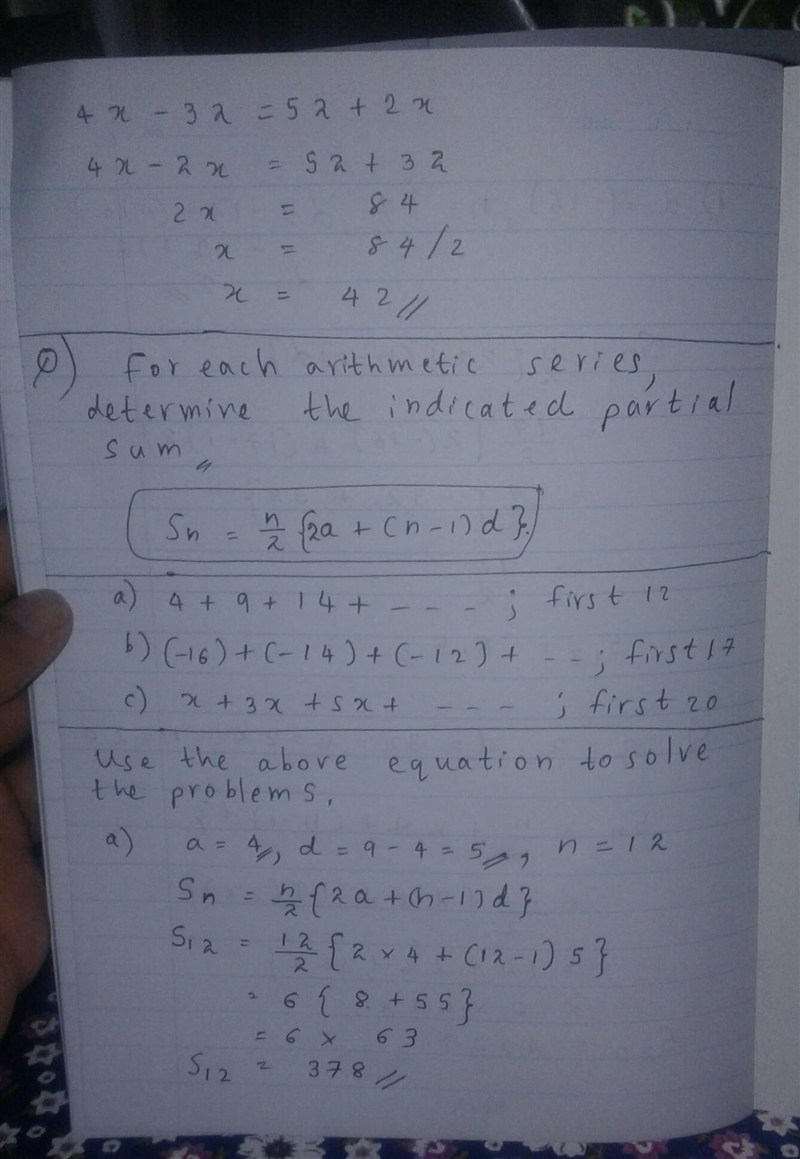 4x - 32 = 52 + 2x
4x - 2x = 52 + 32
2x = 84
x = 84/2
x = 42 //
Q) For each arithmetic series,
determine the indicated partial
sum //
Sn = n/2 {2a + (n-1)d}.
a) 4 + 9 + 14 + - - - - ; first 12
b) (-16) + (-14) + (-12) + - - ; first 17
c) x + 3x + 5x + - - - ; first 20
Use the above equation to solve
the problems.
a) a = 4//, d = 9 - 4 = 5//, n = 12
Sn = n/2 {2a + (n-1)d}
S12 = 12/2 {2 × 4 + (12-1) 5}
= 6 { 8 + 55}
= 6 × 63
S12 = 378 //